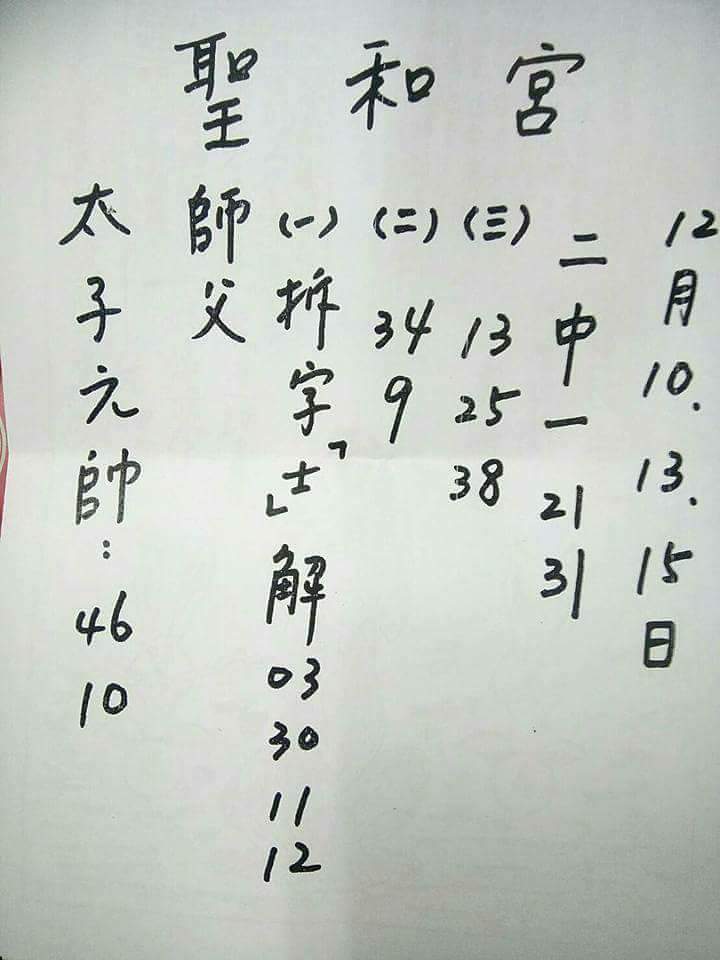 聖和宮
太子元帥：46 10
師父
(一)拆字「士」解 03 30 11 12
(二) 34 9
(三) 13 25 38
二中一 21 31
12月10.13.15日